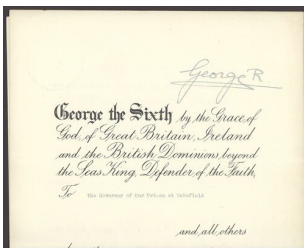 George R
George the Sixth by the Grace of
God, of Great Britain, Ireland
and the British Dominions beyond
the Seas King, Defender of the Faith,
To the Governor of Our Prison at Wakefield
and all others